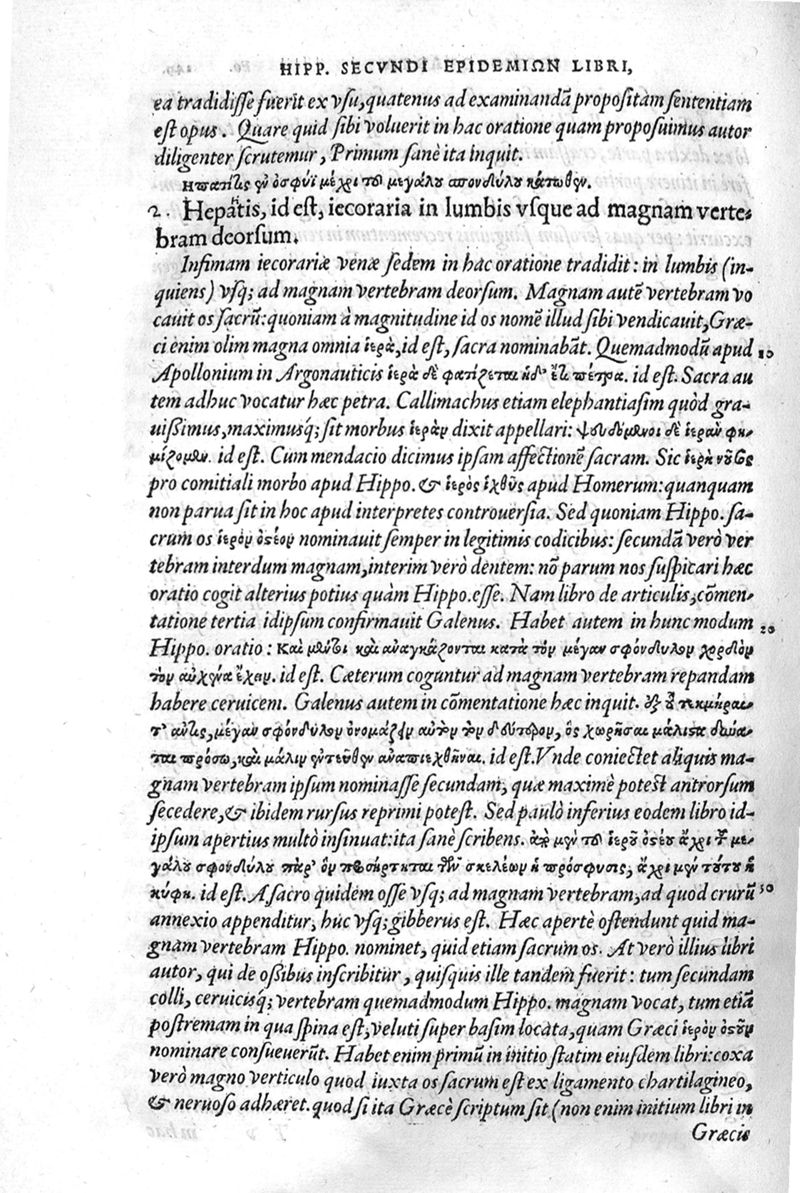 HIPP. SECVNDI EPIDEMIΩN LIBRI,
ea tradidisse fuerit ex vsu, quatenus ad examinandā propositam sententiam
est opus. Quare quid sibi voluerit in hac oratione quam proposuimus autor
diligenter scrutemur, Primum sanè ita inquit.
Ηπατῖτις ἐν ὀσφύϊ μέχρι τοῦ μεγάλου σπονδύλου κάτωθεν.
2. Hepatitis, id est, iecoraria in lumbis vsque ad magnam verte-
bram deorsum.
Infimam iecorariæ venæ sedem in hac oratione tradidit: in lumbis (in-
quiens) vsq; ad magnam vertebram deorsum. Magnam autē vertebram vo
cauit os sacrū: quoniam à magnitudine id os nomē illud sibi vendicauit, Græ-
ci enim olim magna omnia ἱερὰ, id est, sacra nominabāt. Quemadmodū apud 10
Apollonium in Argonauticis ἱερὰ δὲ φατίζεται ἥδ' ἔτι πέτρα. id est. Sacra au
tem adhuc vocatur hæc petra. Callimachus etiam elephantiasim quòd gra-
uissimus, maximusq; sit morbus ἱερὰν dixit appellari: ψευδόμενοι δὲ ἱερὰν φη-
μίζομεν. id est. Cum mendacio dicimus ipsam affectionē sacram. Sic ἱερὴ νοῦσος
pro comitiali morbo apud Hippo. & ἱερὸς ἰχθῦς apud Homerum: quanquam
non parua sit in hoc apud interpretes controuersia. Sed quoniam Hippo. sa-
crum os ἱερὸν ὀστέον nominauit semper in legitimis codicibus: secundā verò ver
tebram interdum magnam, interim verò dentem: nō parum nos suspicari hæc
oratio cogit alterius potius quàm Hippo. esse. Nam libro de articulis, cōmen-
tatione tertia idipsum confirmauit Galenus. Habet autem in hunc modum 20
Hippo. oratio: Καὶ μέντοι καὶ ἀναγκάζονται κατὰ τὸν μέγαν σφόνδυλον
τὸν αὐχένα ἔχειν. id est. Cæterum coguntur ad magnam vertebram repandam
habere ceruicem. Galenus autem in cōmentatione hæc inquit.
μέγαν σφόνδυλον ὀνομάζειν αὐτὸν τὸν δεύτερον, ὃς χωρῆσαι μάλιστα δύνα-
ται πρόσω, καὶ μάλιν ἐντεῦθεν ἀναπιεχθῆναι. id est. Vnde coniectet aliquis ma-
gnam vertebram ipsum nominasse secundam, quæ maximè potest antrorsum
secedere, & ibidem rursus reprimi potest. Sed paulò inferius eodem libro id-
ipsum apertius multò insinuat: ita sanè scribens. ἀπὸ μὲν τοῦ ἱεροῦ ὀστέου ἄχρι τοῦ με-
γάλου σφονδύλου παρ' ὃν προσήρτηται τῶν σκελέων ἡ πρόσφυσις, ἄχρι μὲν τούτου ἡ
κύφη. id est. A sacro quidem osse vsq; ad magnam vertebram, ad quod crurū 30
annexio appenditur, huc vsq; gibberus est. Hæc apertè ostendunt quid ma-
gnam vertebram Hippo. nominet, quid etiam sacrum os. At verò illius libri
autor, qui de ossibus inscribitur, quisquis ille tandem fuerit: tum secundam
colli, ceruicisq; vertebram quemadmodum Hippo. magnam vocat, tum etiā
postremam in qua spina est, veluti super basim locata, quam Græci ἱερὸν ὀστοῦν
nominare consueuerūt. Habet enim primū in initio statim eiusdem libri: coxa
verò magno verticulo quod iuxta os sacrum est ex ligamento chartilagineo,
& neruoso adhæret. quod si ita Græcè scriptum sit (non enim initium libri in
Græcis